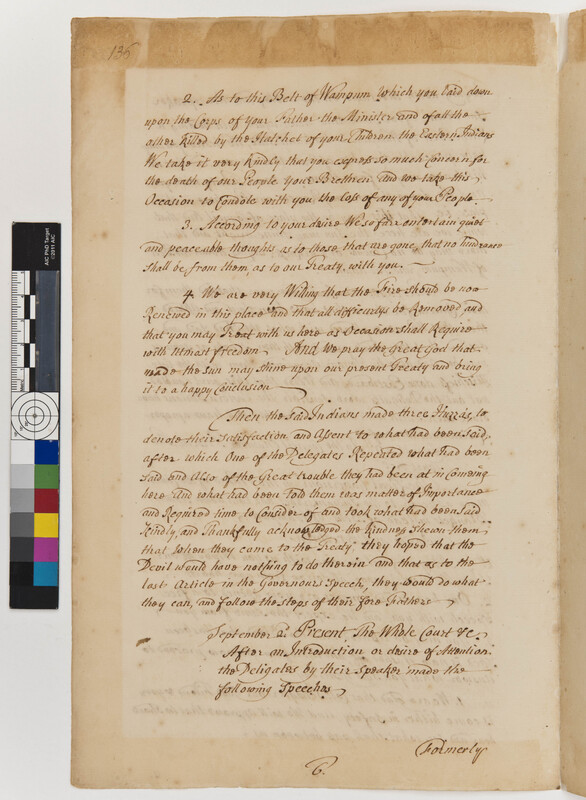 136
2. As to this Belt of Wampum which you Laid down
upon the Corps of your Father the Minister and of all the
other killed by the Hatchet of your Children the Eastern Indians
We take it very kindly that you express so much Concern for
the death of our People Your Brethren and we take this
Occasion to Condole with you the Loss of any of your People.
3. According to your desire We so farr entertain quiet
and peaceable thoughts as to those that are gone, that no hindrance
shall be from them, as to our Treaty, with you.
4. We are very Willing that the Fire should be now
Renewed in this place and that all difficultys be Removed and
that you may Treat with us here as Occasion shall Require
with utmost freedom. And We pray the Great God that
made the sun may shine upon our present Treaty and bring
it to a happy Conclusion
Then the said Indians made three Huzzas, to
denote their Satisfaction and Assent to what had been said,
after which One of the Delegates Repeated what had been
said and Also of the Great trouble they had been at in Comeing
here And what had been told them was matter of Importance
and Required time to Consider of and took what had been said
kindly, and Thankfully acknowledged the kindness shewn them
that when they came to the Treaty they hoped that the
Devil would have nothing to do therein and that as to the
last Article in the Governours Speech, they would do what
they can, and follow the steps of their fore Fathers
September 2. Present The Whole Court &c.
After an Introduction or desire of Attention
the Deligates by their Speaker made the
following Speeches
Formerly
6.